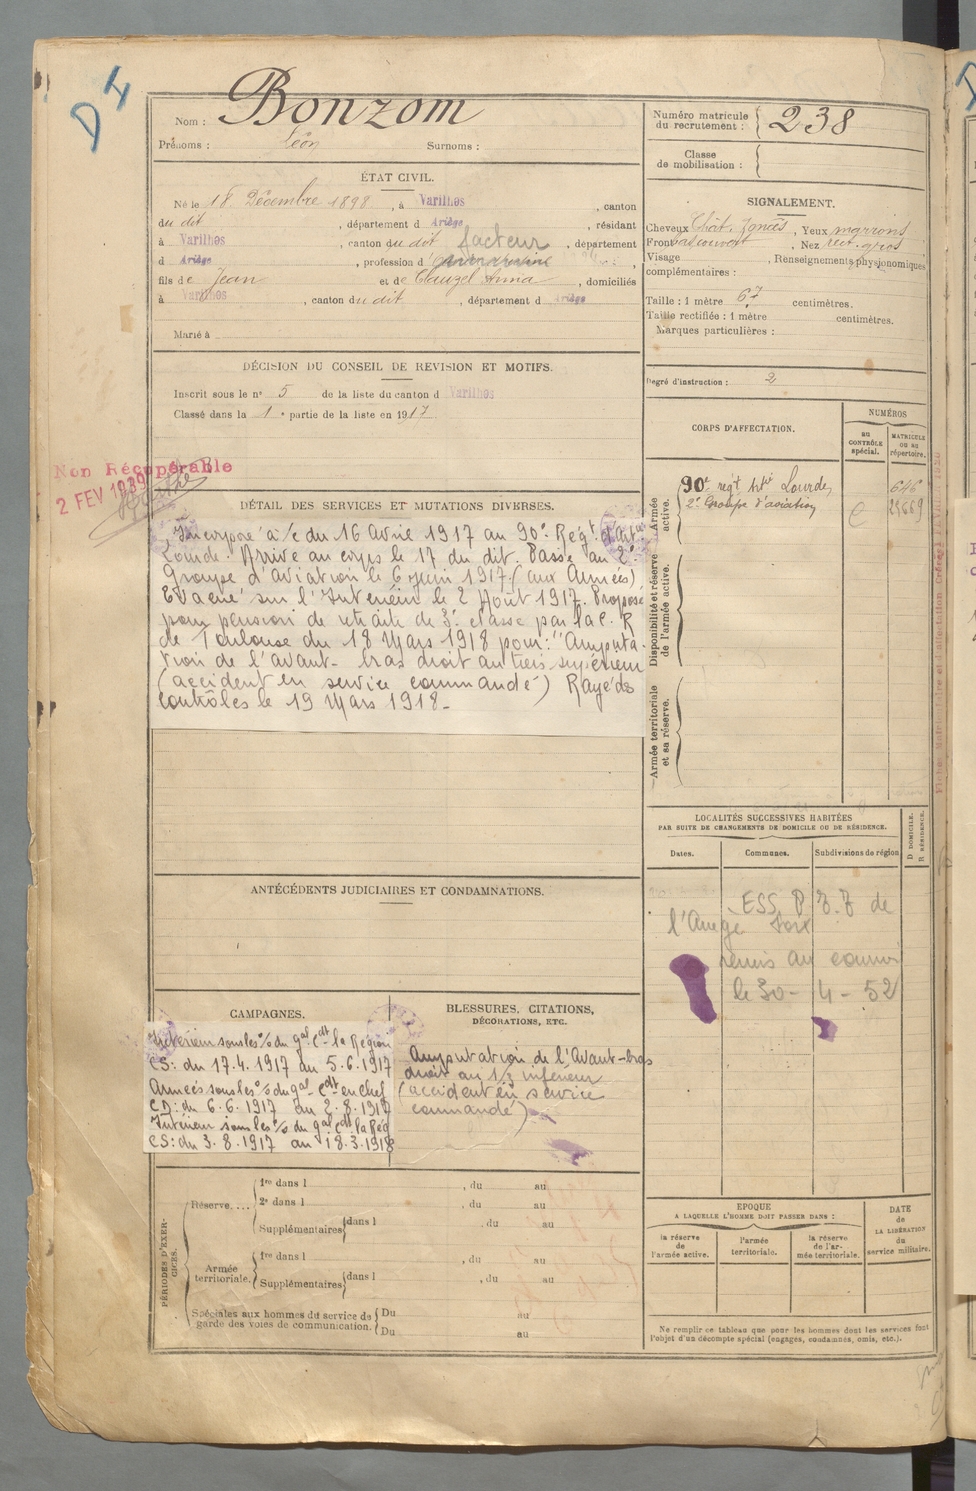 D4
Nom : Bonzom
Prénoms : Léon Surnoms :
ÉTAT CIVIL.
Né le 18 Décembre 1898, à Varilhes, canton
du dit, département d Ariège, résidant
à Varilhes, canton du dit facteur, département
d Ariège, profession d
fils de Jean et de Clauzel Anna, domiciliés
à Varilhes, canton du dit, département d Ariège
Marié à
DÉCISION DU CONSEIL DE REVISION ET MOTIFS.
Inscrit sous le n° 5 de la liste du canton d Varilhes
Classé dans la 1e partie de la liste en 1917
Non Récupérable
2 FEV 1939
DÉTAIL DES SERVICES ET MUTATIONS DIVERSES.
Incorporé à/c du 16 Avril 1917 au 90e Régt d'Art.
Lourde. Arrivé au corps le 17 du dit. Passé au 2e
Groupe d'aviation le 6 Juin 1917 (aux Armées)
Evacué sur l'Intérieur le 2 Août 1917. Proposé
pour pension de retraite de 3e classe par la C. R
de Toulouse du 18 Mars 1918 pour: "Amputa-
tion de l'avant-bras droit au tiers supérieur
(accident en service commandé) Rayé des
contrôles le 19 Mars 1918_
ANTÉCÉDENTS JUDICIAIRES ET CONDAMNATIONS.
CAMPAGNES.
Intérieur sous les o/ du gal Cdt la Région
CS: du 17.4.1917 au 5.6.1917
Armées sous les o/s du gal Cdt en Chef
CD: du 6.6.1917 au 2.8.1917
Intérieur sous les o/s du gal Cdt la Rég
CS: du 3.8.1917 au 18.3.1918
BLESSURES, CITATIONS,
DÉCORATIONS, ETC.
Amputation de l'Avant-bras
droit au 1/3 inférieur
(accident en service
commandé)
PÉRIODES D'EXERCICES.
Réserve.... 1re dans l , du au
2e dans l , du au
Supplémentaires dans l , du au
Armée territoriale. 1re dans l , du au
Supplémentaires dans l , du au
Spéciales aux hommes du service de garde des voies de communication. Du au
Du au
Numéro matricule
du recrutement : 238
Classe
de mobilisation :
SIGNALEMENT.
Cheveux Chât. foncés, Yeux marrons
Front Nez rect. gros
Visage , Renseignements physionomiques
complémentaires :
Taille : 1 mètre 67 centimètres.
Taille rectifiée : 1 mètre centimètres.
Marques particulières :
Degré d'instruction : 2
CORPS D'AFFECTATION.
NUMÉROS
au CONTRÔLE spécial.
MATRICULE ou au répertoire.
Armée active.
90e régt Artie Lourde 646
2e Groupe d'aviation
Disponibilité et réserve de l'armée active.
Armée territoriale et sa réserve.
LOCALITÉS SUCCESSIVES HABITÉES
PAR SUITE DE CHANGEMENTS DE DOMICILE OU DE RÉSIDENCE.
Dates. Communes. Subdivisions de région
D DOMICILE. R RÉSIDENCE.
ESS P de
l'Ariège Foix
remis au
le 30-4-52
EPOQUE
A LAQUELLE L'HOMME DOIT PASSER DANS :
la réserve de l'armée active.
l'armée territoriale.
la réserve de l'armée territoriale.
DATE de LA LIBÉRATION du service militaire.
Ne remplir ce tableau que pour les hommes dont les services font
l'objet d'un décompte spécial (engagés, condamnés, omis, etc.).